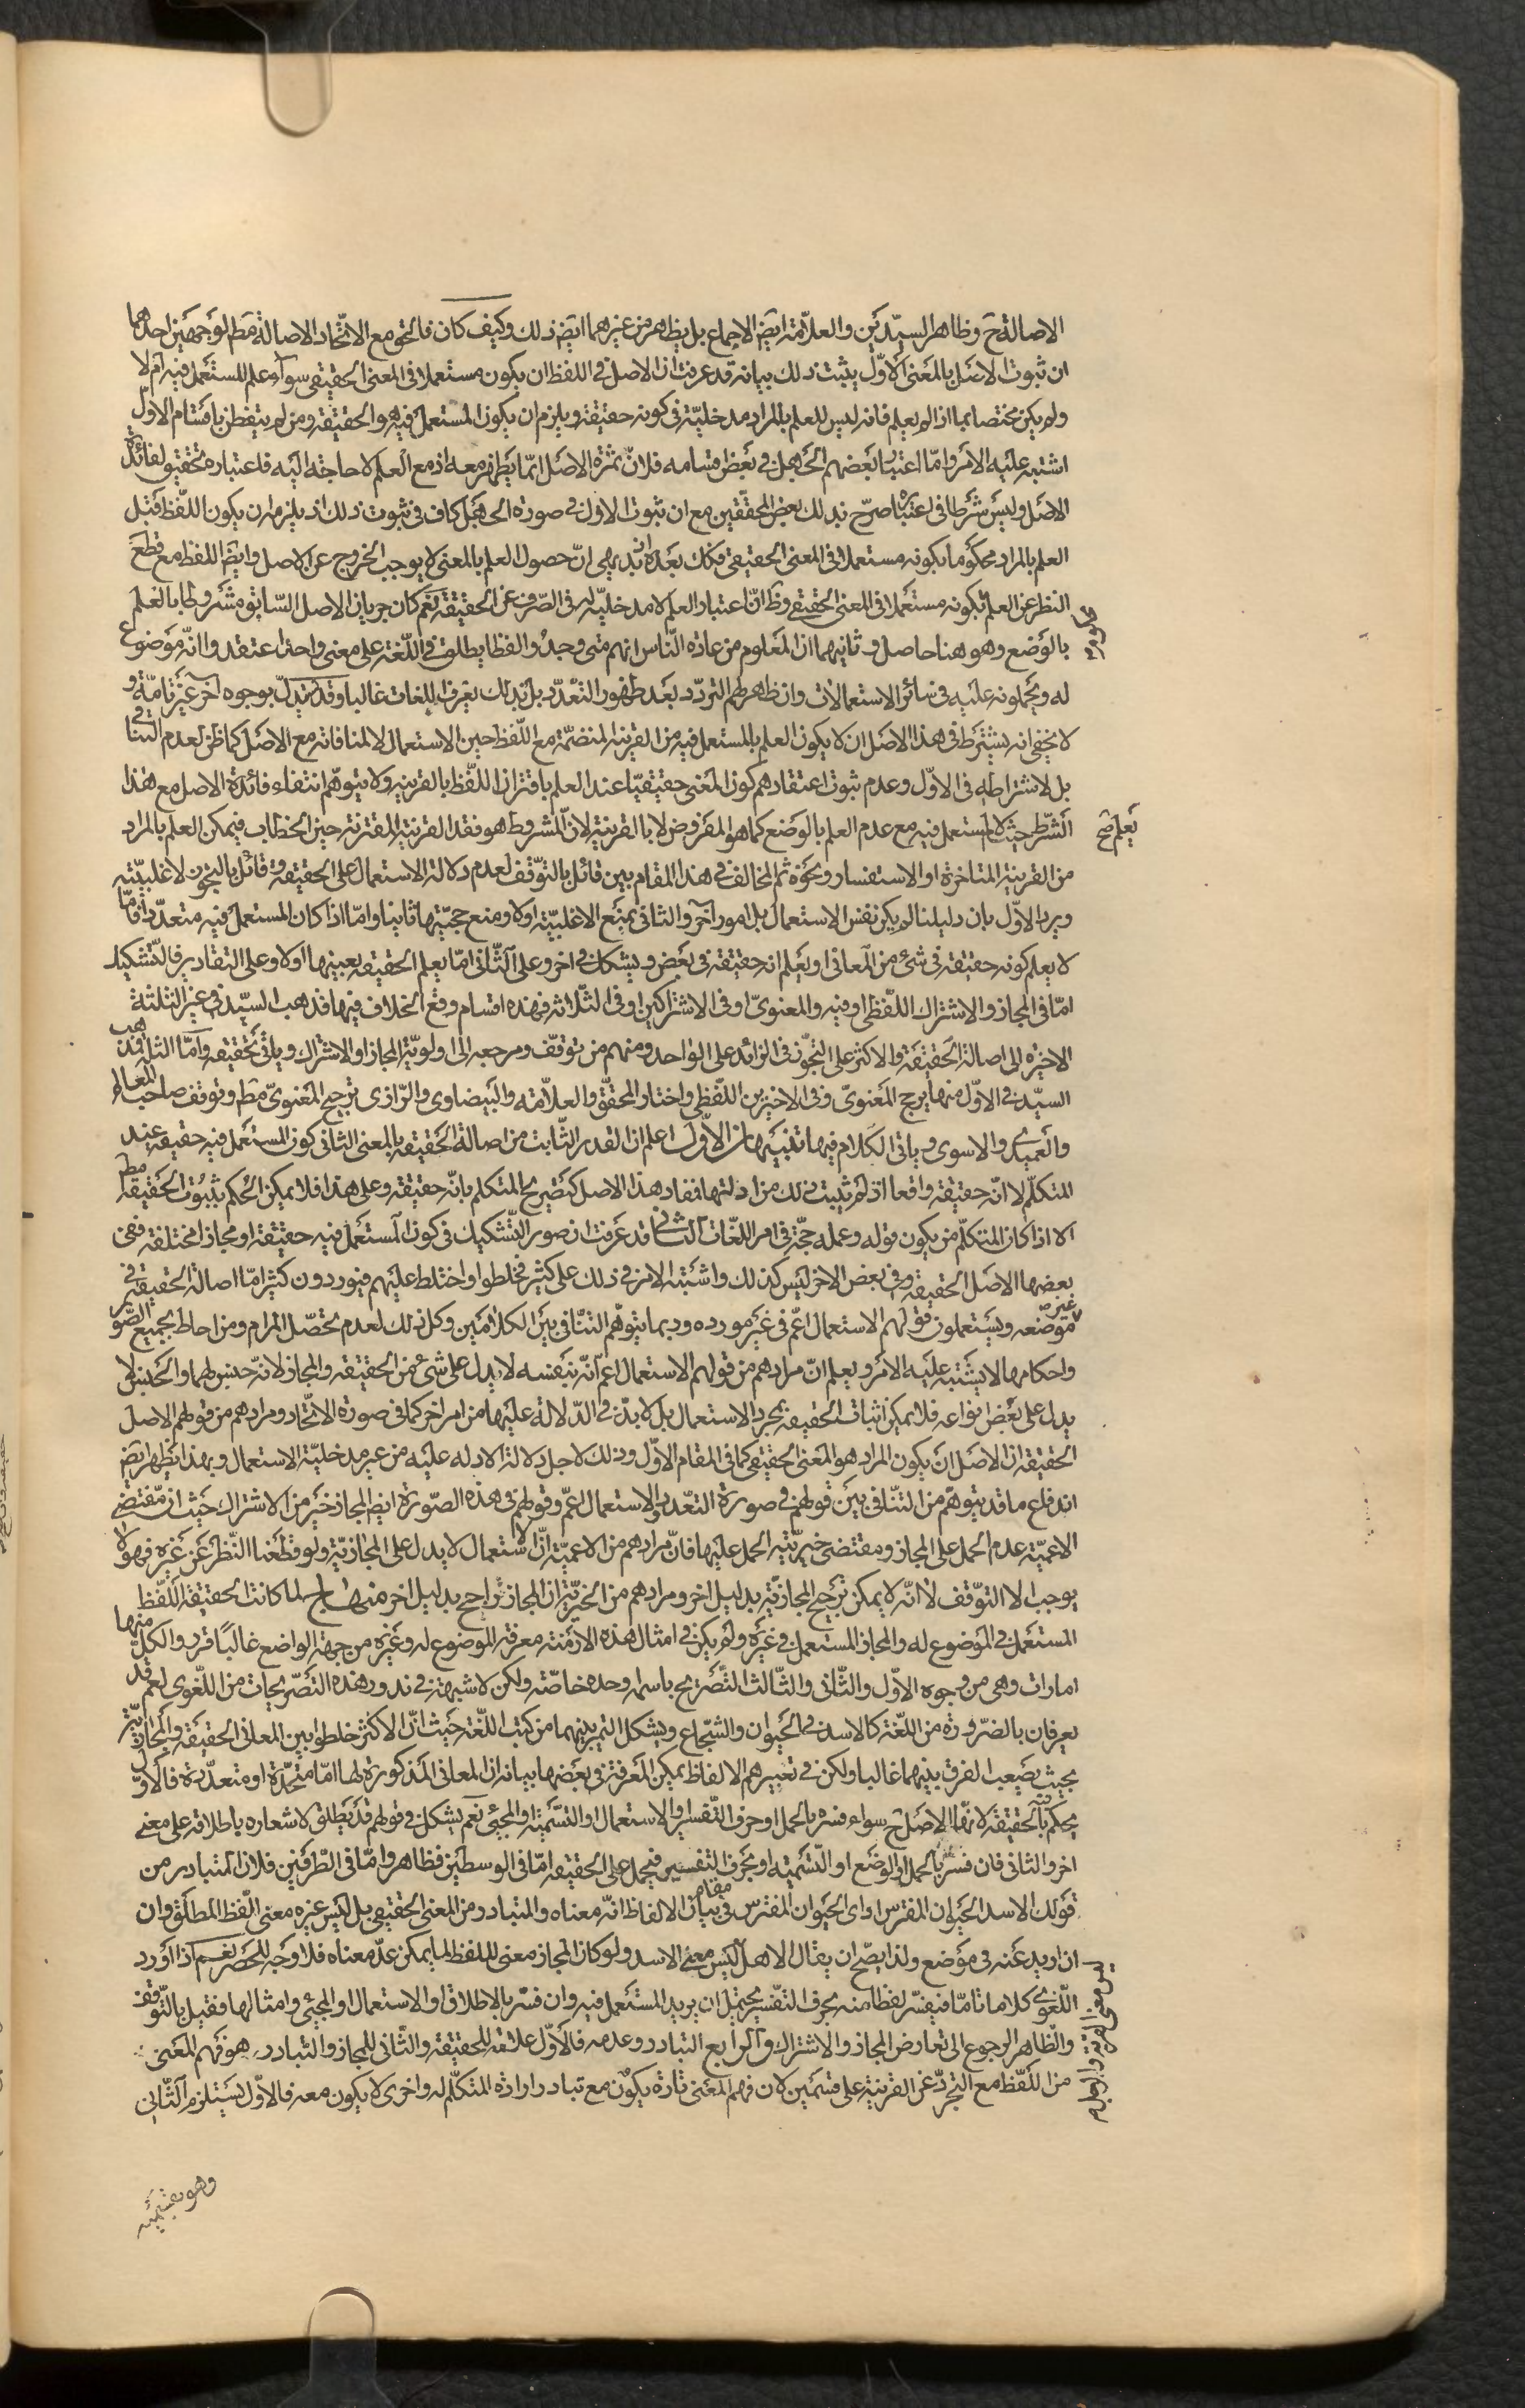 الاصالة ح وظاهر السيّدين والعلّامة ايضا الاجماع بل يظهر من غيرهما ايضا ذلك وكيف كان فالحق مع الاتّحاد الاصالة مط لوجهين احدهما
ان ثبوت الاصل بالمعنى الاوّل يثبت ذلك بيانه قد عرفت ان الاصل في اللفظ ان يكون مستعملا في المعنى الحقيقي سوآء علم المستعمل فيه ام لا
ولم يكن مختصا بما اذا لم يعلم فانه ليس للعلم بالمراد مدخليّة في كونه حقيقة ويلزم ان يكون المستعمل فيه هو الحقيقة ومن لم يتفطن باقسام الاول
اشتبه عليه الامر وامّا اعتبار بعضهم الجهل في بعض اقسامه فلانّ ثمرة الاصل انما يظهر معه اذ مع العلم لا حاجة اليه فاعتباره لتحقيق لفائدة
الاصل وليس شرطا في اعتباره صرّح بذلك بعض المحققين مع ان ثبوت الاول في صورة الجهل كاف في ثبوت ذلك اذ يلزم ان يكون اللفظ قبل
العلم بالمراد محكوما بكونه مستعملا في المعنى الحقيقي فكك بعده اذ بديهي انّ حصول العلم بالمعنى لا يوجب الخروج عن الاصل وايضا اللفظ مع قطع
النظر عن العلم بكونه مستعملا في المعنى الحقيقي وظ انّ اعتبار العلم لا مدخليّة له في الصّرف عن الحقيقة نعم كان جريان الاصل السّابق مشروطا بالعلم
بالوضع وهو هنا حاصل وثانيهما ان المعلوم من عادة النّاس انهم متى وجدوا لفظا يطلق في اللّغة على معنى واحد اعتقدوا انّه موضوع
له ويحملونه عليه في سائر الاستعمالات وان ظاهرهم التردّد بعد ظهور التعدّد بل بذلك يعرف اللغات غالبا وقد يستدلّ بوجوه آخر غير تامّة و
لا يخفى انه يشترط في هذا الاصل ان لا يكون العلم بالمستعمل فيه من القرينة المنضمّة مع اللّفظ حين الاستعمال لا لمنافاته مع الاصل كما ظن لعدم التنافي
بل لاشتراطه في الاوّل وعدم ثبوت اعتقادهم كون المعنى حقيقيّا عند العلم باقتران اللّفظ بالقرينة ولا يتوهّم انتفاء فائدة الاصل مع هذا
الشّرط حيث لا يعلم المستعمل فيه مع عدم العلم بالوضع كما هو المفروض لا بالقرينة لانّ المشروط هو فقد القرينة المقترنة حين الخطاب فيمكن العلم بالمراد
من القرينة المتاخرة او الاستفسار ونحوه ثم المخالف في هذا المقام بين قائل بالتوقّف لعدم دلالة الاستعمال على الحقيقة وقائل بالتجوز لاغلبيّته
ويرد الاوّل بان دليلنا لم يكن نفس الاستعمال بل امور آخر والثاني بمنع الاغلبيّة اولا ومنع حجيّتها ثانيا وامّا اذا كان المستعمل فيه متعدّدا فامّا
لا يعلم كونه حقيقة في شيء من المعاني او يعلم انه حقيقة في بعض ويشكك في اخر وعلى الثّاني امّا يعلم الحقيقة بعينها اولا وعلى التقادير فالتّشكيك
امّا في المجاز والاشتراك اللّفظي او فيه والمعنويّ او في الاشتراكين او في الثلاثة فهذه اقسام وقع الخلاف فيها فذهب السيّد في غير الثلثة
الاخيرة الى اصالة الحقيقة والاكثر على التجوّز في الزائد على الواحد ومنهم من توقّف ومرجعه الى اولويّة المجاز او الاشتراك وياتي تحقيقه وامّا الثلثة فذهب
السيّد في الاوّل منها يرجح المعنويّ وفي الاخيرين اللّفظي واختار المحقّق والعلاّمة والبيضاوي والرّازي ترجيح المعنويّ مط وتوقف صاحب المعالم
والعميدي والاسنوي وياتي الكلام فيها تنبيهان الاوّل اعلم ان القدر الثّابت من اصالة الحقيقة بالمعنى الثاني كون المستعمل فيه حقيقة عند
المتكلّم لا انّه حقيقة واقعا اذ لم يثبت ذلك من ادلّتها فمفاد هذا الاصل كتصريح المتكلم بانّه حقيقة وعلى هذا فلا يمكن الحكم بثبوت الحقيقة مط
الا اذا كان المتكلّم من يكون قوله وعمله حجّة في امر اللّغات الثاني قد عرفت ان صور التّشكيك في كون المستعمل فيه حقيقة او مجازا مختلفة ففي
بعضها الاصل الحقيقة وفي بعض الاخر ليس كذلك واشتبه الامر في ذلك على كثير فخلطوا واختلط عليهم فيوردون كثيرا مّا اصالة الحقيقة في
غير موضعه ويستعملون قولهم الاستعمال اعمّ في غير مورده وربما يتوهّم التنافي بين الكلامين وكل ذلك لعدم تحصّل المرام ومن احاط بجميع الصّور
واحكامها لا يشتبه عليه الامر ويعلم انّ مرادهم من قولهم الاستعمال اعمّ انّه بنفسه لا يدل على شيء من الحقيقة والمجاز لانّه جنس لهما والجنس لا
يدل على بعض انواعه فلا يمكن اثبات الحقيقة بمجرد الاستعمال بل لا بدّ في الدّلالة عليها من امر اخر كما في صورة الاتّحاد ومرادهم من قولهم الاصل
الحقيقة انّ الاصل ان يكون المراد هو المعنى الحقيقي كما في المقام الاوّل وذلك لاجل دلالة الادلة عليه من غير مدخليّة الاستعمال وبهذا يظهر ايضا
اندفاع ما قد يتوهّم من التنافي بين قولهم في صورة التعدّد الاستعمال اعمّ وقولهم في هذه الصّورة ايضا المجاز خير من الاشتراك حيث ان مقتضى
الاعميّة عدم الحمل على المجاز ومقتضى خيريّته الحمل عليها فانّ مرادهم من الاعميّة انّ الاستعمال لا يدل على المجازيّة ولو قطعنا النّظر عن غيره فهو لا
يوجب الا التوّقف لا انّه لا يمكن ترجيح المجازيّة بدليل اخر ومرادهم من الخيريّة ان المجاز راجح بدليل اخر منهاج لما كانت الحقيقة اللّفظ
المستعمل في الموضوع له والمجاز المستعمل في غيره ولم يكن في امثال هذه الازمنة معرفة الموضوع له وغيره من جهة الواضع غالبًا قرّروا لكل منهما
امارات وهي من وجوه الاوّل والثّاني والثّالث التّصريح باسمه وحده خاصّته ولكن لا شبهة في ندور هذه التّصريحات من اللّغوي نعم قد
يعرفان بالضرورة من اللّغة كالاسد في الحيوان والشّجاع ويشكل التميز بينهما من كتب اللّغة حيث انّ الاكثر خلطوا بين المعاني الحقيقة والمجازيّة
بحيث يصعب الفرق بينهما غالبا ولكن في تعبيرهم الالفاظ يمكن المعرفة في بعضها بيانه ان المعاني المذكورة لها امّا متّحدة او متعدّدة فالاوّل
يحكم فيه بالحقيقة لانها الاصل ح سواء فسّره بالحمل او حرف التّفسير والاستعمال او التّسمية او المجيء نعم يشكل في قولهم قد يطلق لاشعاره باطلاقه على معنى
اخر والثاني فان فسّر بالحمل او الوضع او التّسمية او بحرف التفسير فيحمل على الحقيقة امّا في الوسطين فظاهر وامّا في الطّرفين فلانّ المتبادر من
قولك الاسد الحيوان المفترس او اى الحيوان المفترس في مقام بيان الالفاظ انّه معناه والمتبادر من المعنى الحقيقي بل ليس غيره معنى اللّفظ المطلق وان
ان اريد عنه في موضع ولذا يصّح ان يقال الاهل ليس معنى الاسد ولو كان المجاز معنى لللفظ لما يمكن عدّ معناه فلا وجه للحصر نعم اذا اورد
اللّغوي كلاما تامّا فيفسّر لفظا منه بحرف التفسير يحتمل ان يريد المستعمل فيه وان فسّر بالاطلاق او الاستعمال او المجيء وامثالها فقيل بالتّوقف
والظّاهر الرجوع الى تعارض المجاز والاشتراك والرابع التبادر وعدمه فالاوّل علامة للحقيقة والثّاني للمجاز والتبادر هو فهم المعنى
من اللّفظ مع التجرّد عن القرينة على قسمين لان فهم المعنى تارة يكون مع تبادر ارادة المتكلّم له واخرى لا يكون معه فالاوّل يستلزم الثّاني
وهو بقسميه